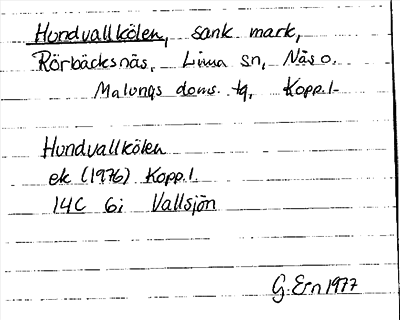 Hundvallkölen, sank mark,
Rörbäcksnäs, Lima sn, Näs o.
Malungs doms. tg, Kopp.l.
Hundvallkölen
ek (1976) Kopp.l.
14C 6i Vallsjön
G. Ern 1977